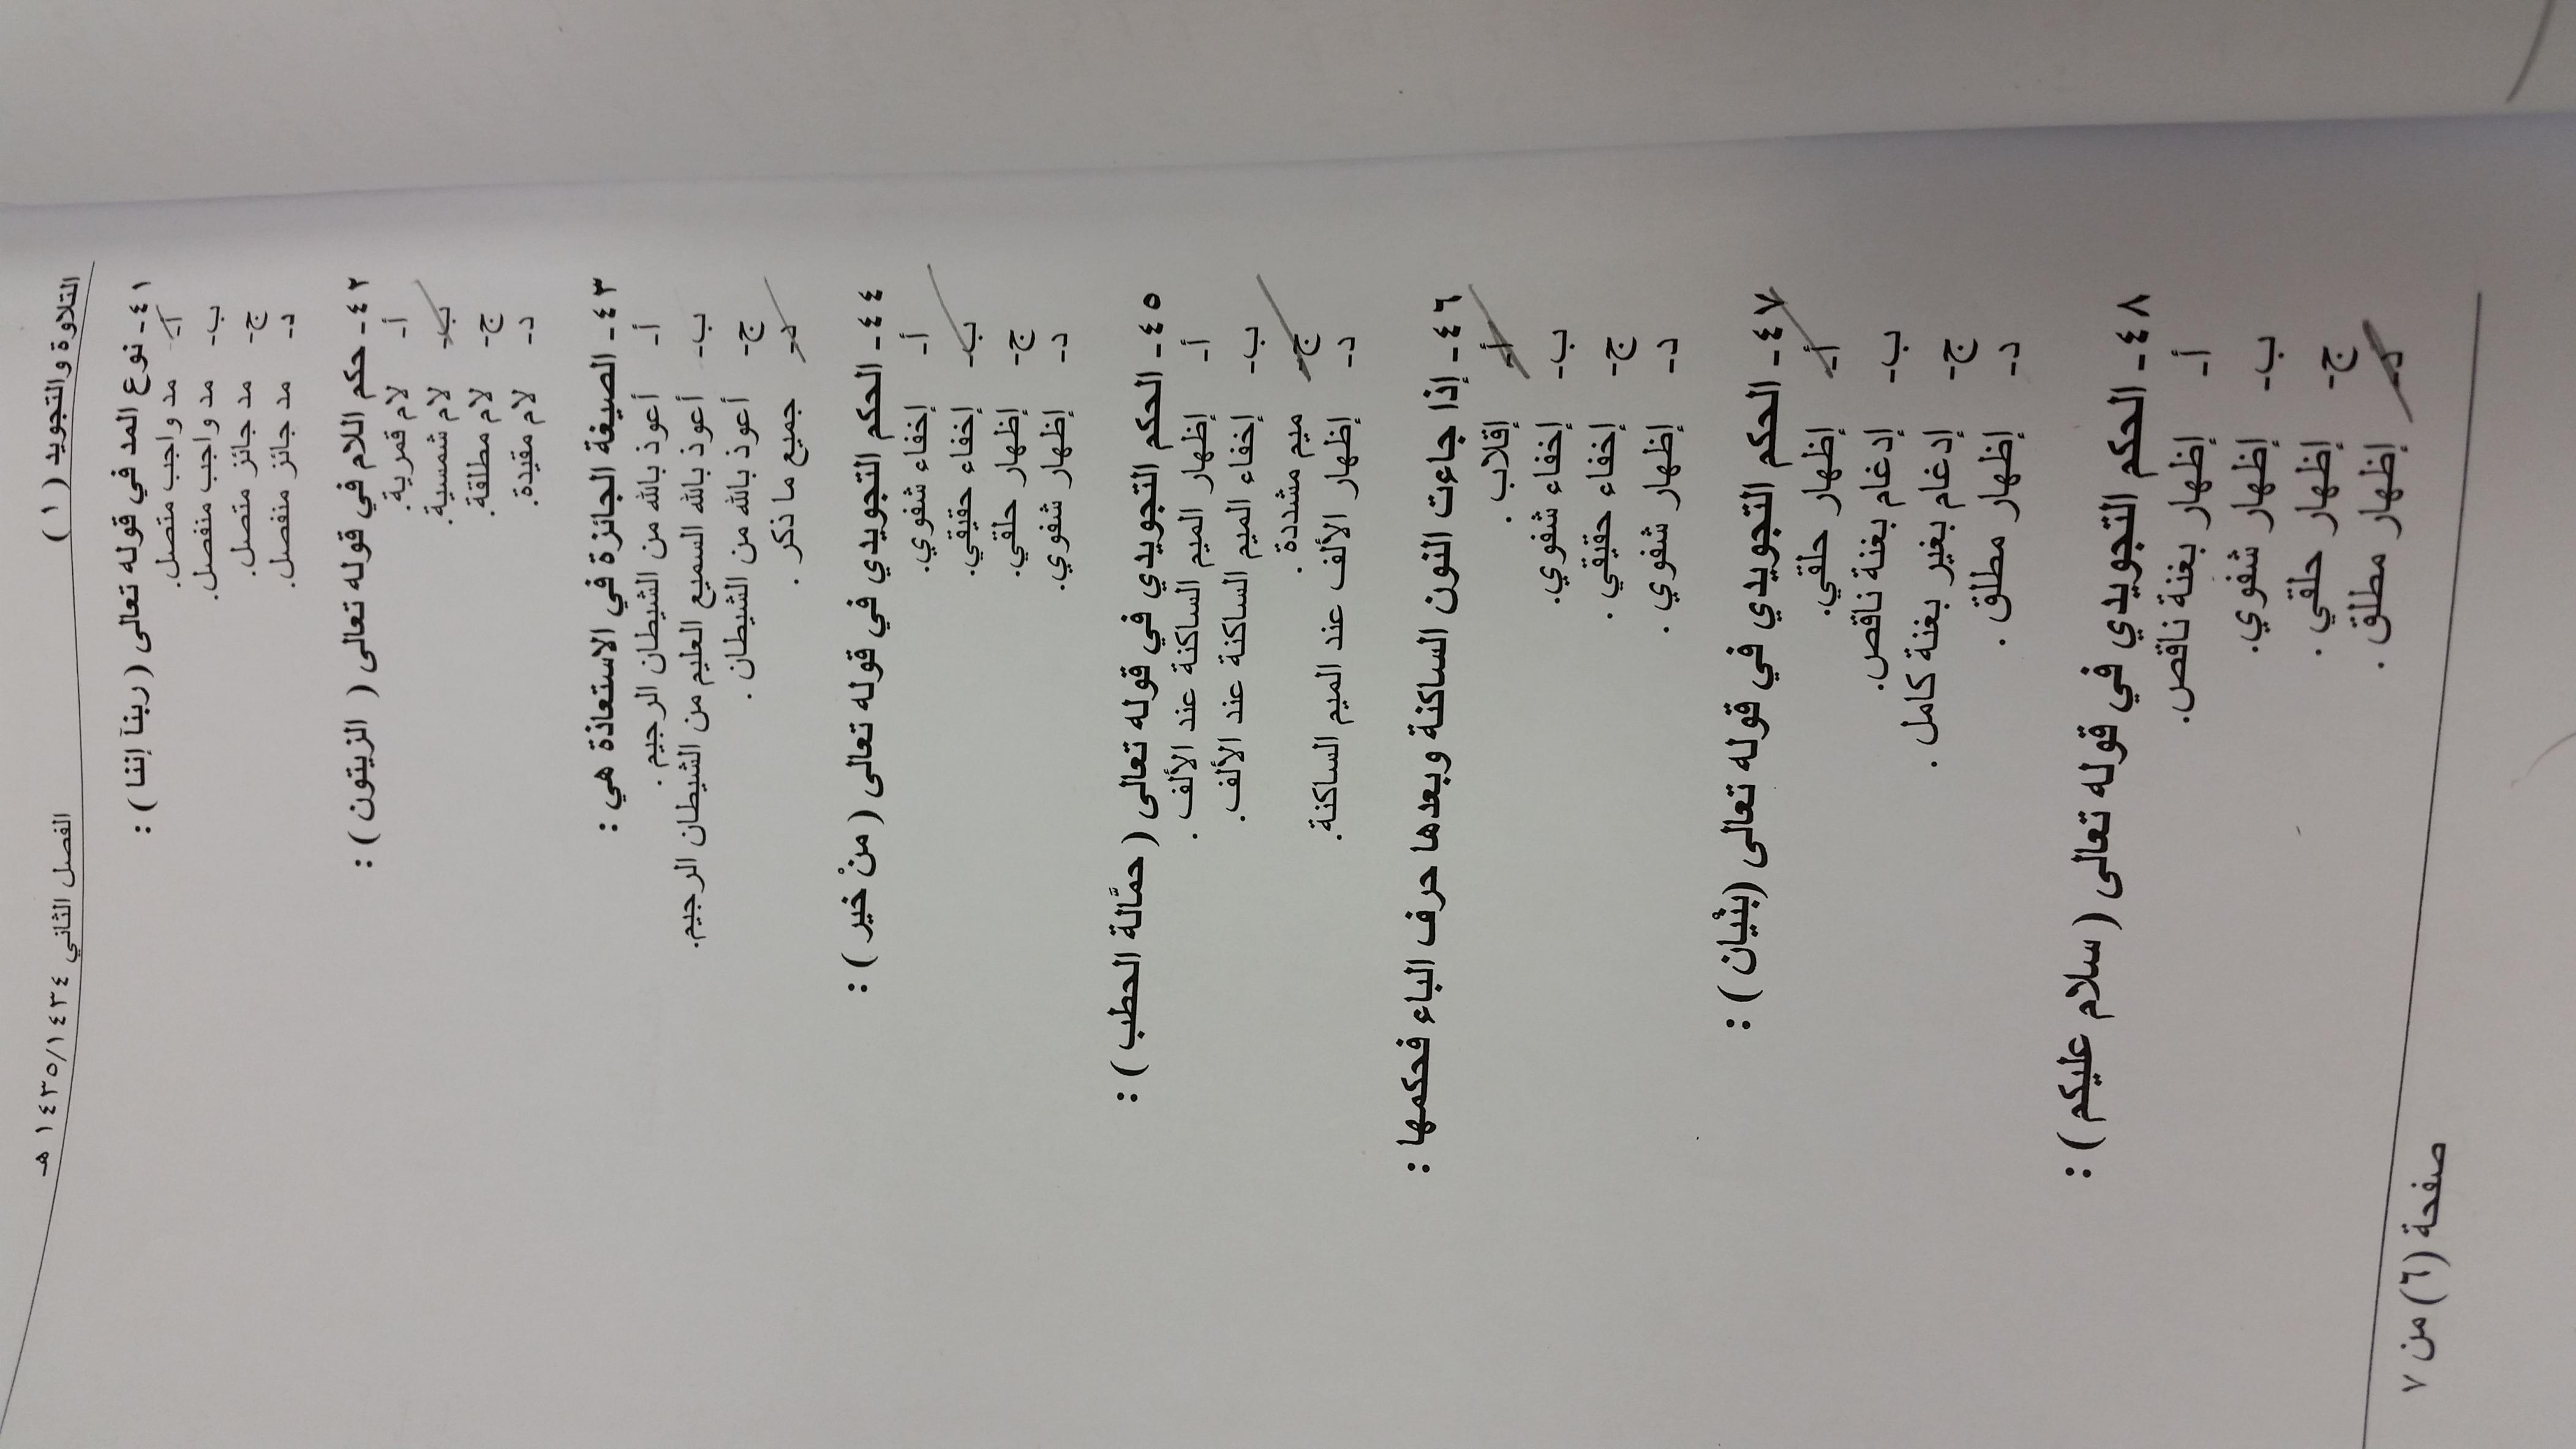 التلاوة والتجويد (١) الفصل الثاني ١٤٣٥/١٤٣٤ هـ
٤١- نوع المد في قوله تعالى (ربنآ إننا) :
أ- مد واجب متصل.
ب- مد واجب منفصل.
ج- مد جائز متصل.
د- مد جائز منفصل.
٤٢- حكم اللام في قوله تعالى ( الزيتون) :
أ- لام قمرية.
ب- لام شمسية.
ج- لام مطلقة.
د- لام مقيدة.
٤٣- الصيغة الجائزة في الاستعاذة هي :
أ- أعوذ بالله من الشيطان الرجيم .
ب- أعوذ بالله السميع العليم من الشيطان الرجيم.
ج- أعوذ بالله من الشيطان .
د- جميع ما ذكر .
٤٤- الحكم التجويدي في قوله تعالى (منْ خير) :
أ- إخفاء شفوي.
ب- إخفاء حقيقي.
ج- إظهار حلقي.
د- إظهار شفوي.
٤٥- الحكم التجويدي في قوله تعالى (حمَّالة الحطب) :
أ- إظهار الميم الساكنة عند الألف .
ب- إخفاء الميم الساكنة عند الألف.
ج- ميم مشددة .
د- إظهار الألف عند الميم الساكنة.
٤٦- إذا جاءت النون الساكنة وبعدها حرف الباء فحكمها :
أ- إقلاب .
ب- إخفاء شفوي.
ج- إخفاء حقيقي .
د- إظهار شفوي .
٤٧- الحكم التجويدي في قوله تعالى (بنْيان) :
أ- إظهار حلقي.
ب- إدغام بغنة ناقص.
ج- إدغام بغير بغنة كامل .
د- إظهار مطلق .
٤٨- الحكم التجويدي في قوله تعالى (سلام عليكم) :
أ- إظهار بغنة ناقص.
ب- إظهار شفوي.
ج- إظهار حلقي .
د- إظهار مطلق .
صفحة (٦) من ٧